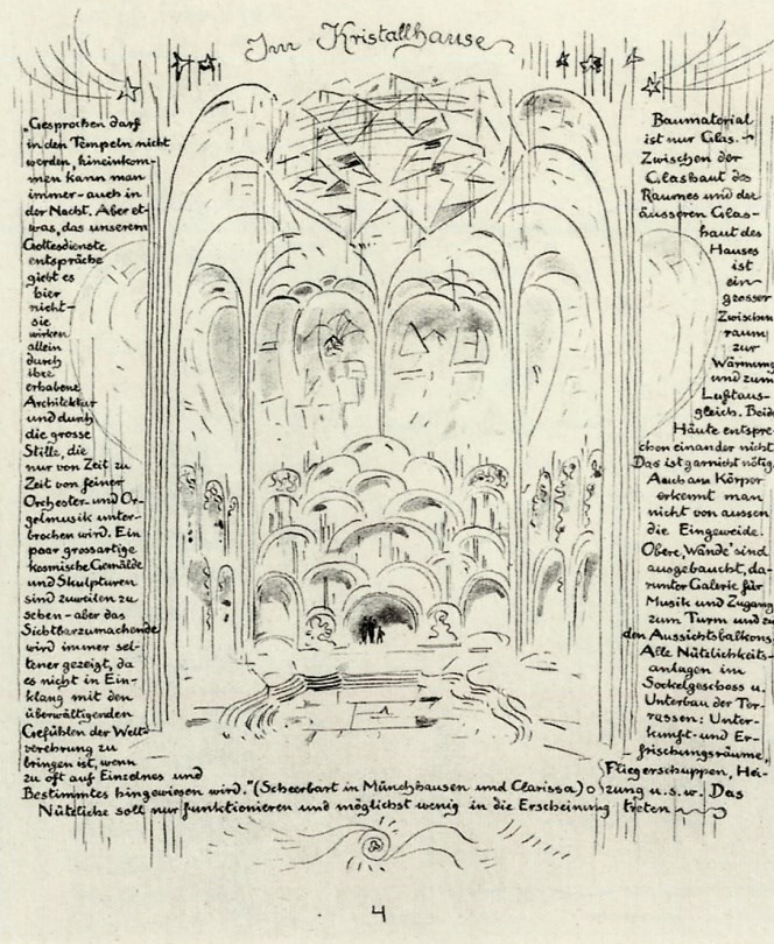 Im Kristallhause
„Gesprochen darf
in den Tempeln nicht
werden, hineinkom-
men kann man
immer - auch in
der Nacht. Aber et-
was, das unserem
Gottesdienste
entspräche
giebt es
hier
nicht -
sie
wirken
allein
durch
ihre
erhabene
Architektur
und durch
die grosse
Stille, die
nur von Zeit zu
Zeit von feiner
Orchester- und Or-
gelmusik unter-
brochen wird. Ein
paar grossartige
kosmische Gemälde
und Skulpturen
sind zuweilen zu
sehen - aber das
Sichtbarzumachende
wird immer sel-
tener gezeigt, da
es nicht in Ein-
klang mit den
überwältigenden
Gefühlen der Welt-
verehrung zu
bringen ist, wenn
zu oft auf Einzelnes und
Bestimmtes hingewiesen wird." (Scheerbart in Münchhausen und Clarissa) o
Baumaterial
ist nur Glas. -
Zwischen der
Glashaut des
Raumes und der
äusseren Glas-
haut des
Hauses
ist
ein
grosser
Zwischen
raum
zur
Wärmung
und zum
Luftaus-
gleich. Beide
Häute entspre-
chen einander nicht.
Das ist garnicht nötig.
Auch am Körper
erkennt man
nicht von aussen
die Eingeweide.
Obere „Wände" sind
ausgebaucht, da-
runter Galerie für
Musik und Zugang
zum Turm und zu
den Aussichtsbalkons.
Alle Nützlichkeits-
anlagen im
Sockelgeschoss u.
Unterbau der Ter-
rassen: Unter-
kunft- und Er-
frischungsräume,
Fliegerschuppen, Hei-
zung u.s.w. Das
Nützliche soll nur funktionieren und möglichst wenig in die Erscheinung treten
4